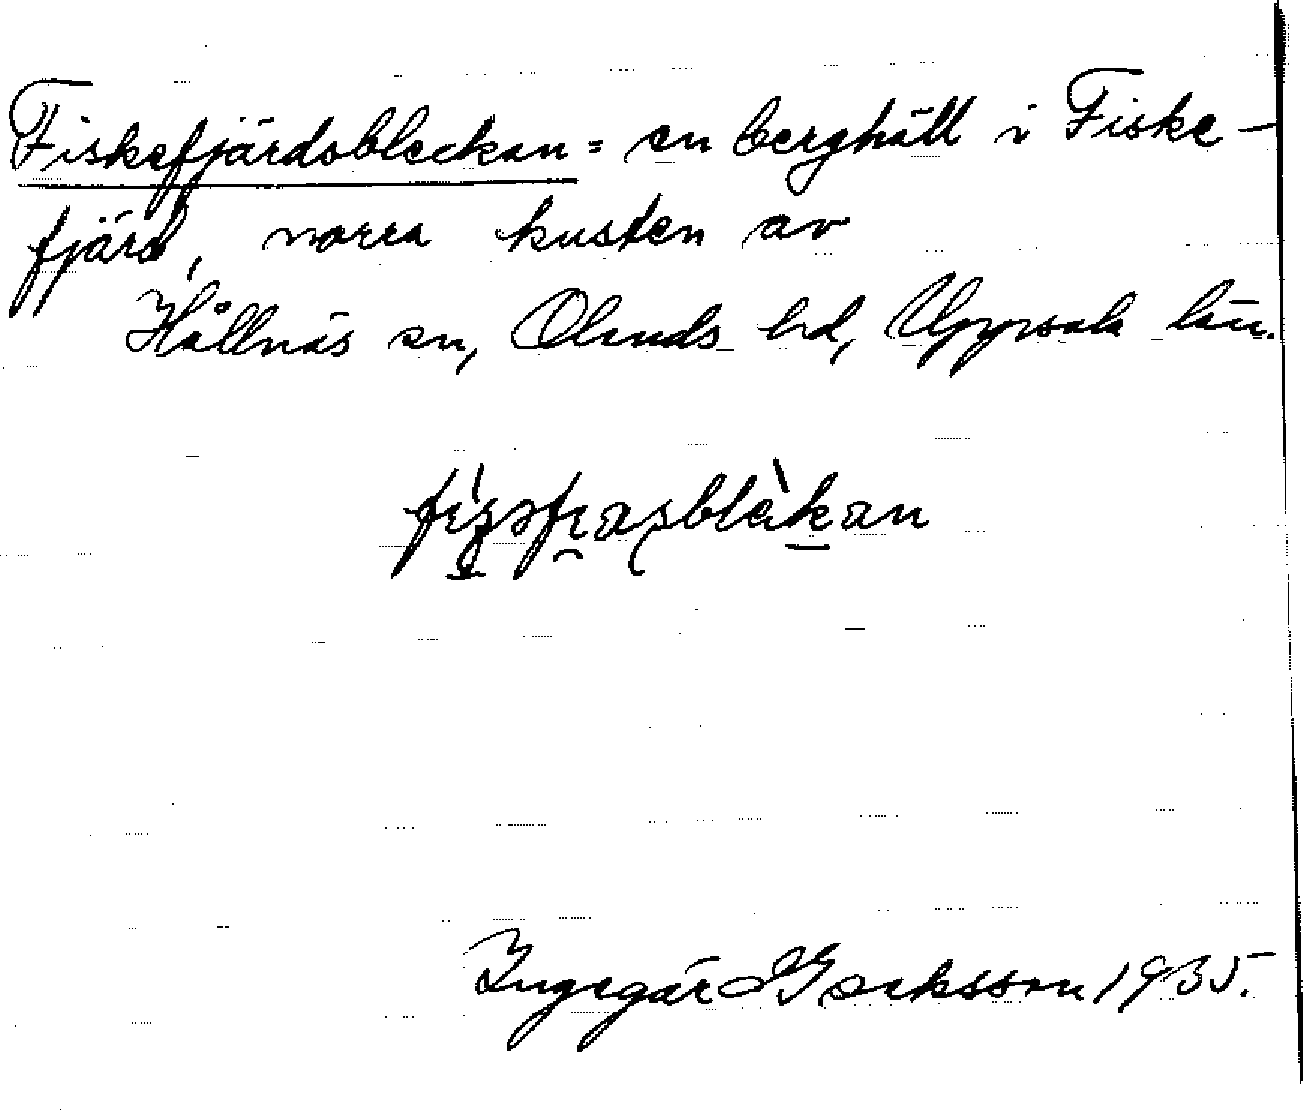 Fiskefjärdsbleckan = en berghäll i Fiske-
fjärd, norra kusten av
Hållnäs sn, Olands hd, Uppsala län.
Ingegär Isaksson 1935.